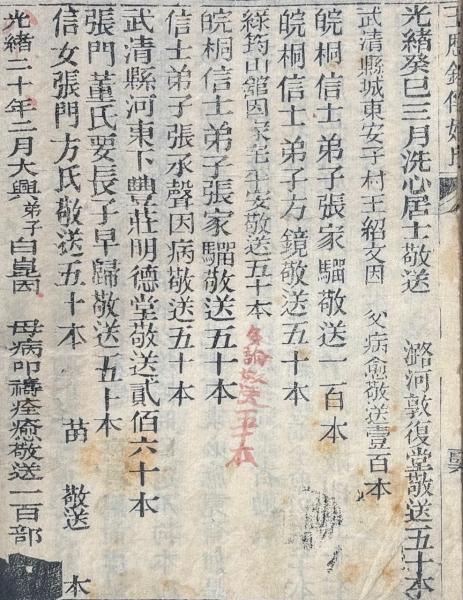 光緒癸巳三月洗心居士敬送　潞河敦復堂敬送五十本
武清縣城東安子村王紹文因　父病愈敬送壹百本
皖桐信士弟子張家騮敬送一百本
皖桐信士弟子方鏡敬送五十本
綠筠山館因家宅平安敬送五十本
敬送五十本
皖桐信士弟子張家騮敬送五十本
信士弟子張承聲因病敬送五十本
武清縣河東下豐莊明德堂敬送貳佰六十本
張門董氏要長子早歸敬送五十本
信女張門方氏敬送五十本　苗　敬送　本
光緒二十年二月大興弟子白崑因　母病叩禱痊癒敬送一百部